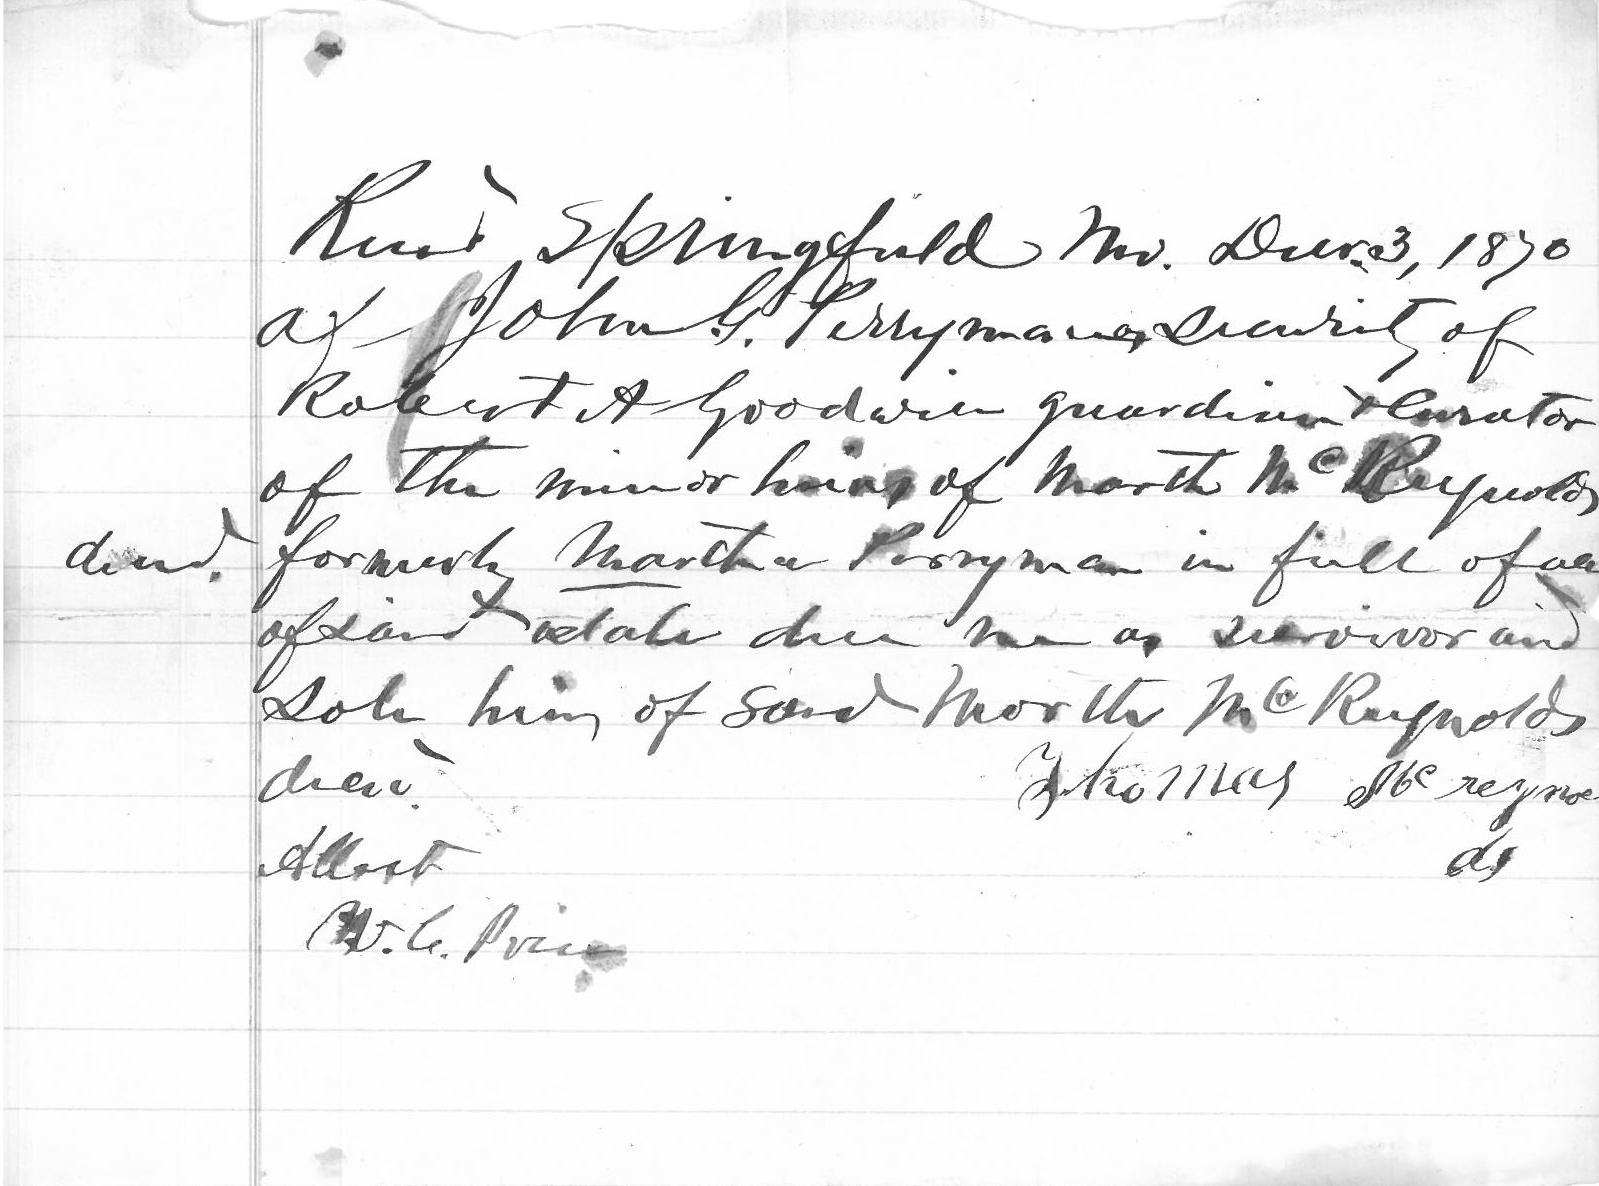 Recd Springfield Mo. Decr. 3, 1870
of John G. Perryman as security of
Robert A Goodwin guardian & Curator
of the minor heirs of Marth McReynolds
decd. formerly Martha Perryman in full of all
of said estate due me as survivor and
sole heir of said Marth McReynolds
decd.
Thomas Mcreynol
ds
Attest
W. C. Price